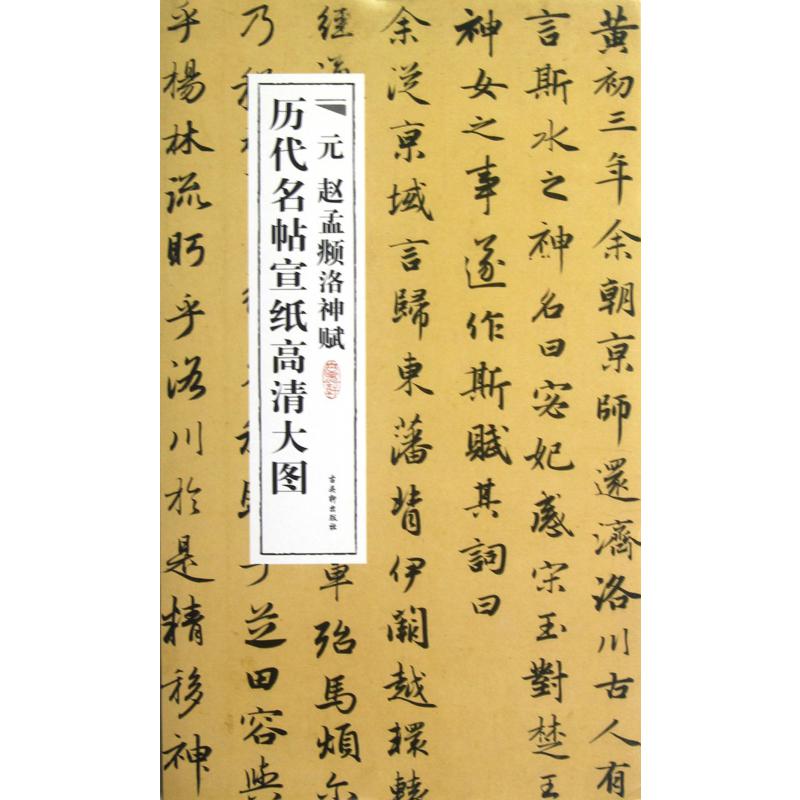 黄初三年余朝京師還濟洛川古人有
言斯水之神名曰宓妃感宋玉對楚王
神女之事遂作斯賦其詞曰
余從京域言歸東藩背伊闕越轘轅
經
車殆馬煩尔
乃
芝田容與
乎楊林流眄乎洛川於是精移神
元 赵孟𫖯洛神赋
历代名帖宣纸高清大图
吉吴轩出版社